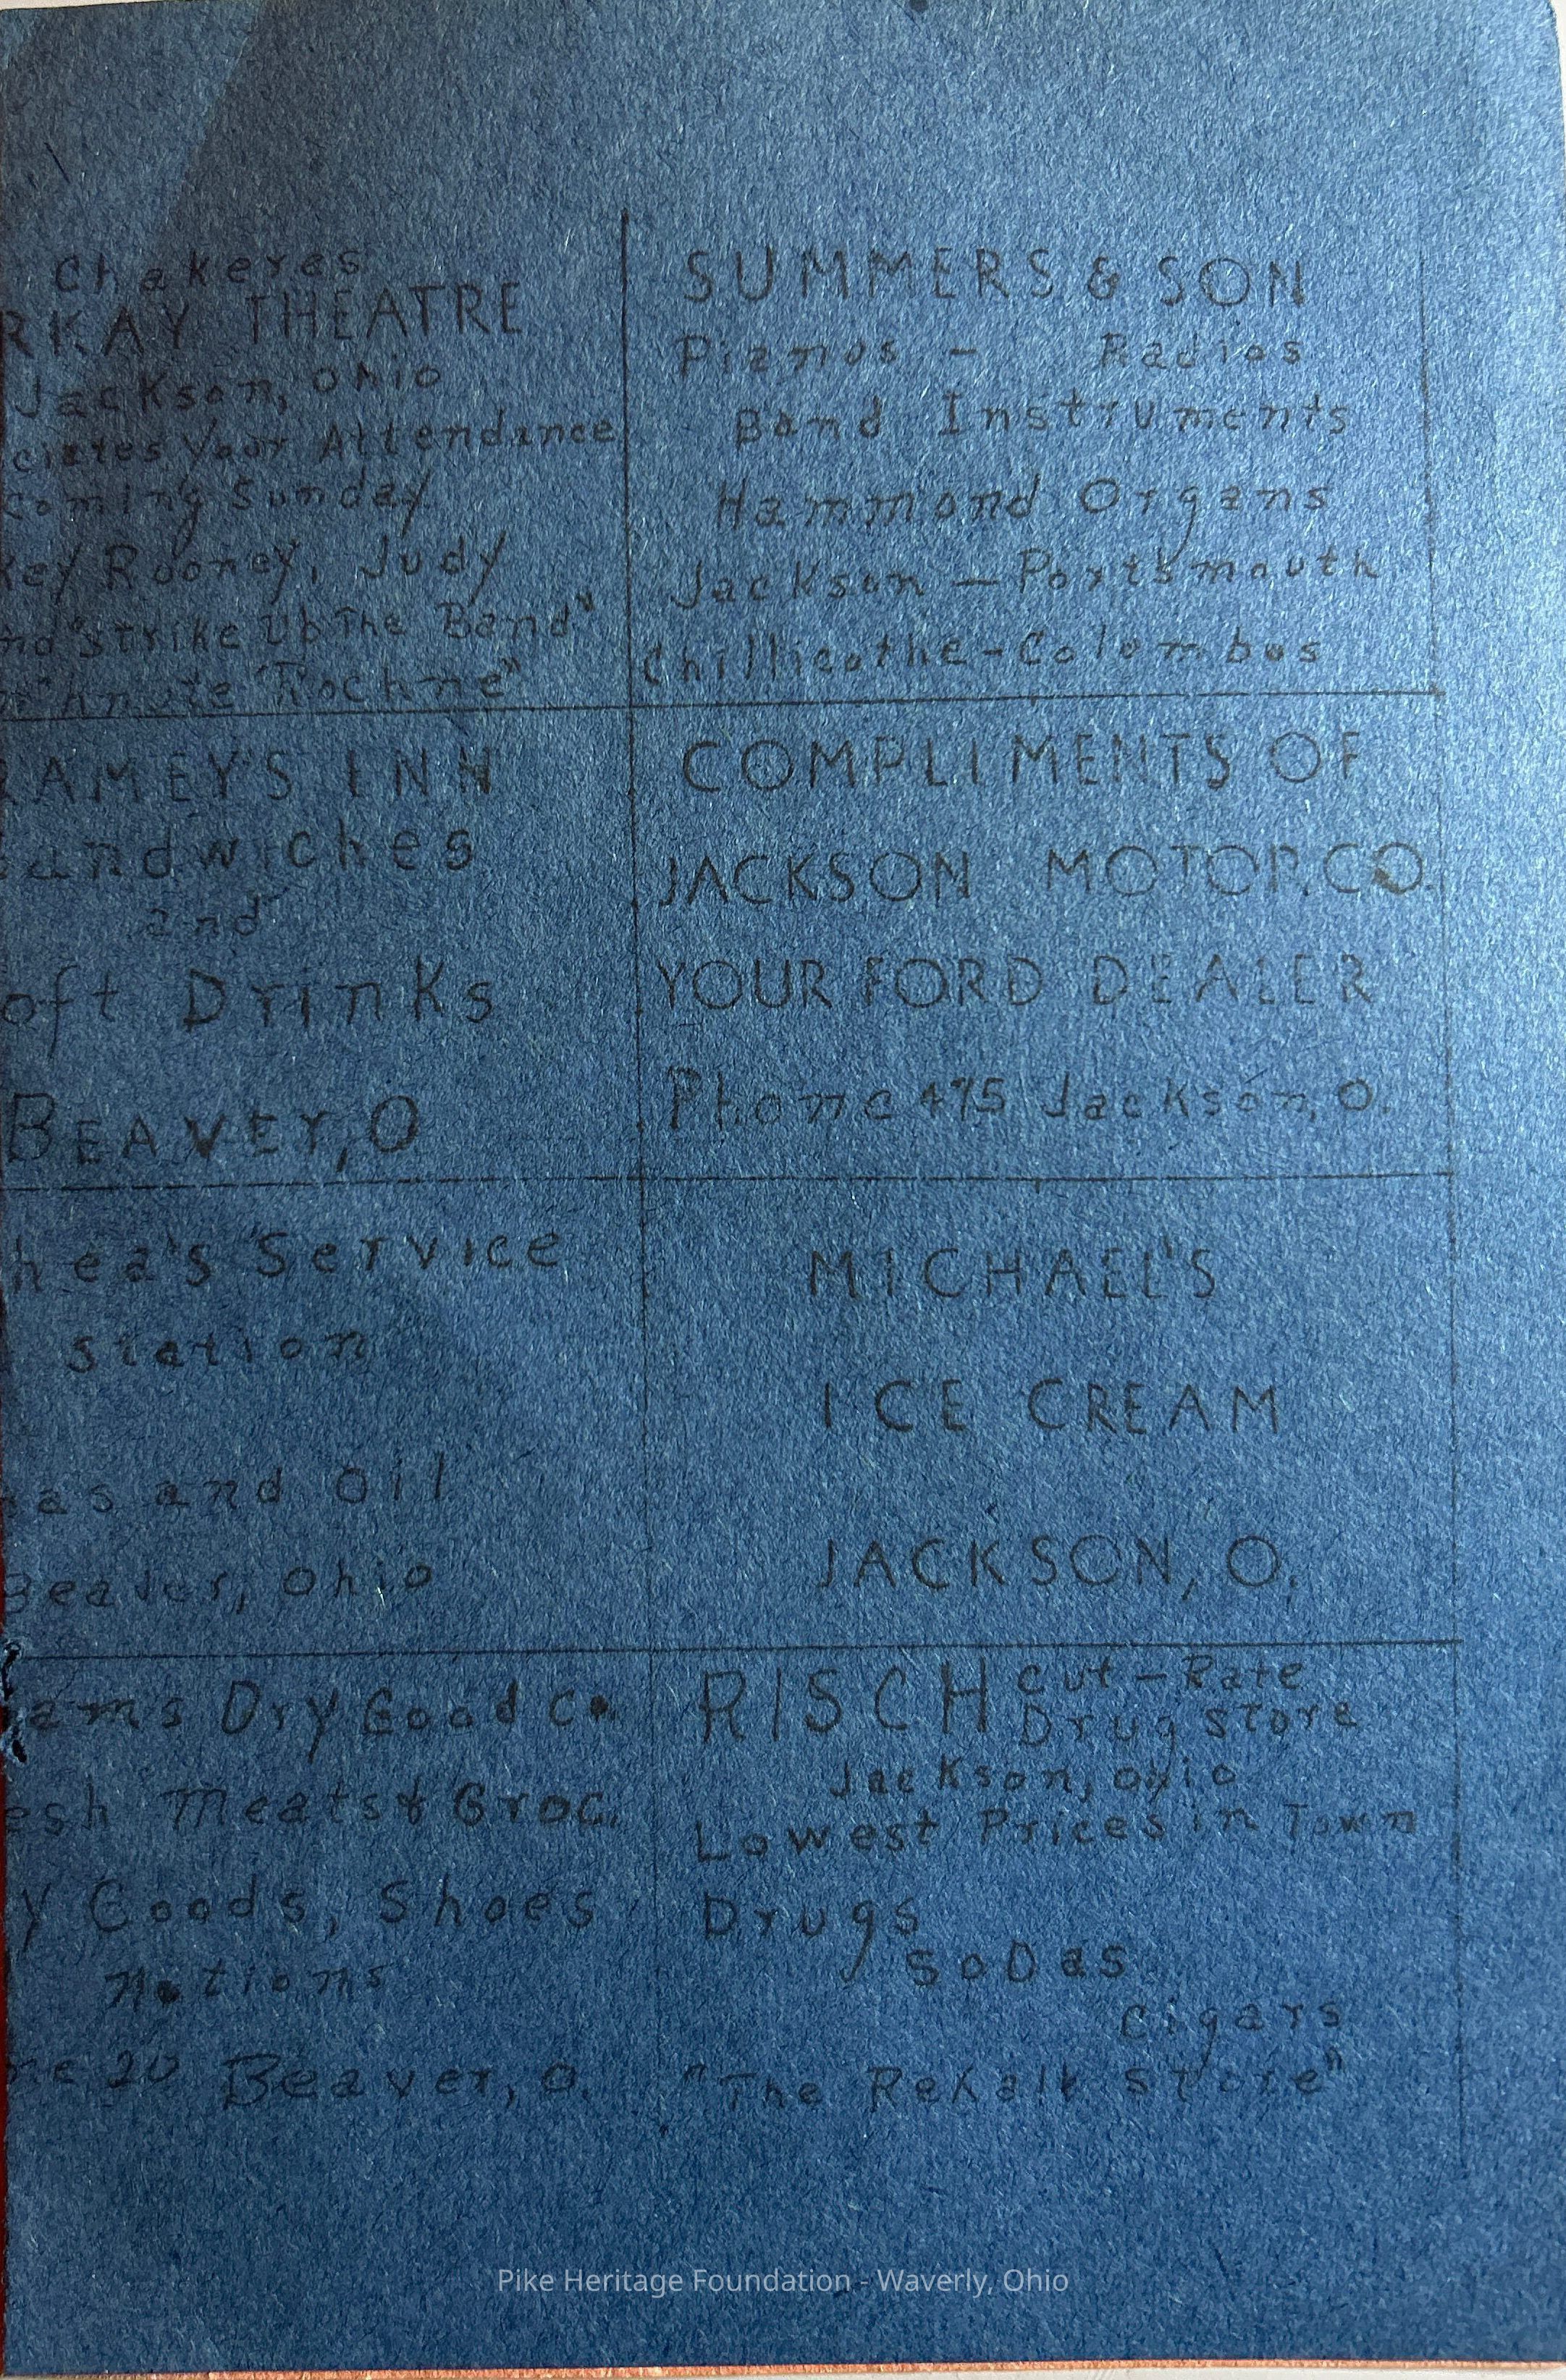 Chakeres
RKAY THEATRE
Jackson, Ohio
ciates Your Attendance
Coming Sunday
key Rooney, Judy
nd "Strike Up The Band"
"Rochne"
RAMEY'S INN
andwiches
and
oft Drinks
BEAVER, O
hea's Service
Station
as and Oil
Beaver, Ohio
am's Dry Good Co.
esh Meats & Groc.
y Goods, Shoes
Notions
ne 20 Beaver, O.
SUMMERS & SON
Pianos - Radios
Band Instruments
Hammond Organs
Jackson - Portsmouth
Chillicothe - Colombus
COMPLIMENTS OF
JACKSON MOTOR CO.
YOUR FORD DEALER
Phone 475 Jackson, O.
MICHAEL'S
ICE CREAM
JACKSON, O.
RISCH Cut-Rate
Drug Store
Jackson, Ohio
Lowest Prices in Town
Drugs
SoDas
Cigars
"The Rexall Store"
Pike Heritage Foundation - Waverly, Ohio